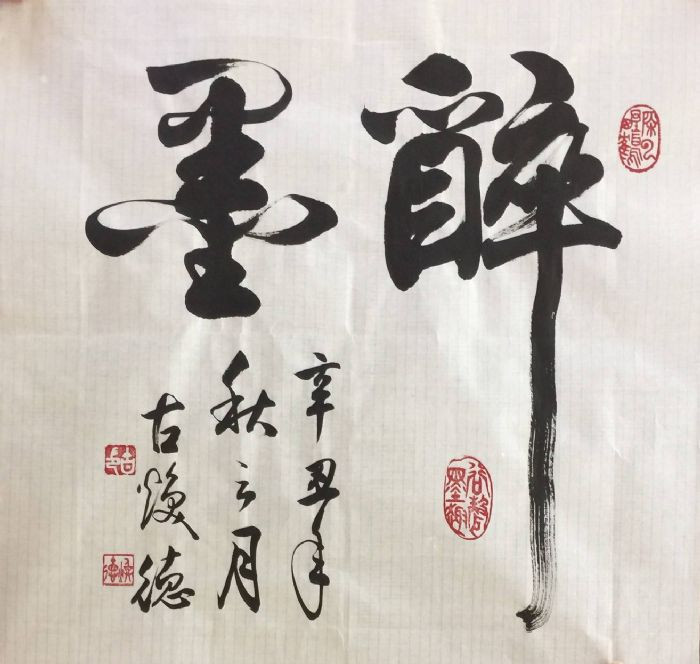 醉墨
辛丑年
秋之月
古焕德